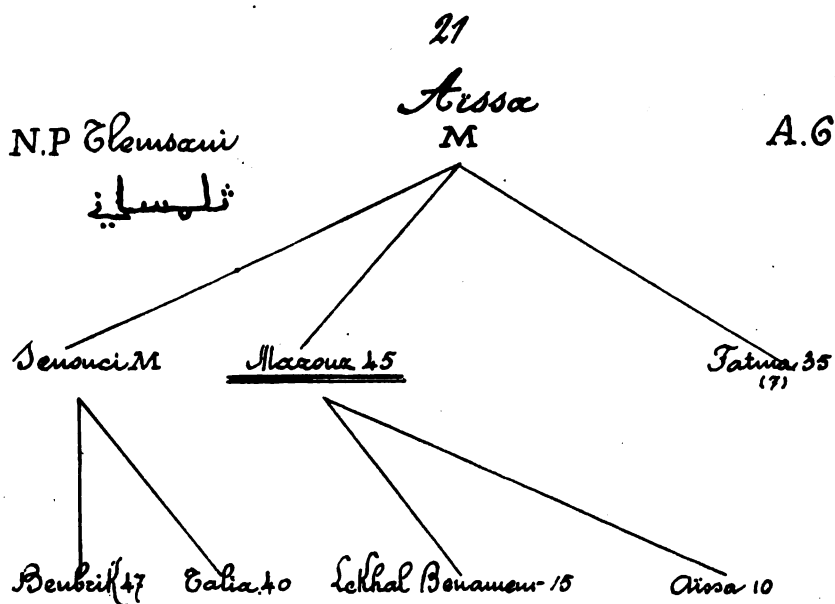 21
Aïssa
M
N.P Tlemsani
A.6
تلمساني
Senouci M
Mazouz 45
Fatma 35
(7)
Benbrik 47
Talia 40
Lekhal Benameur 15
Aïssa 10